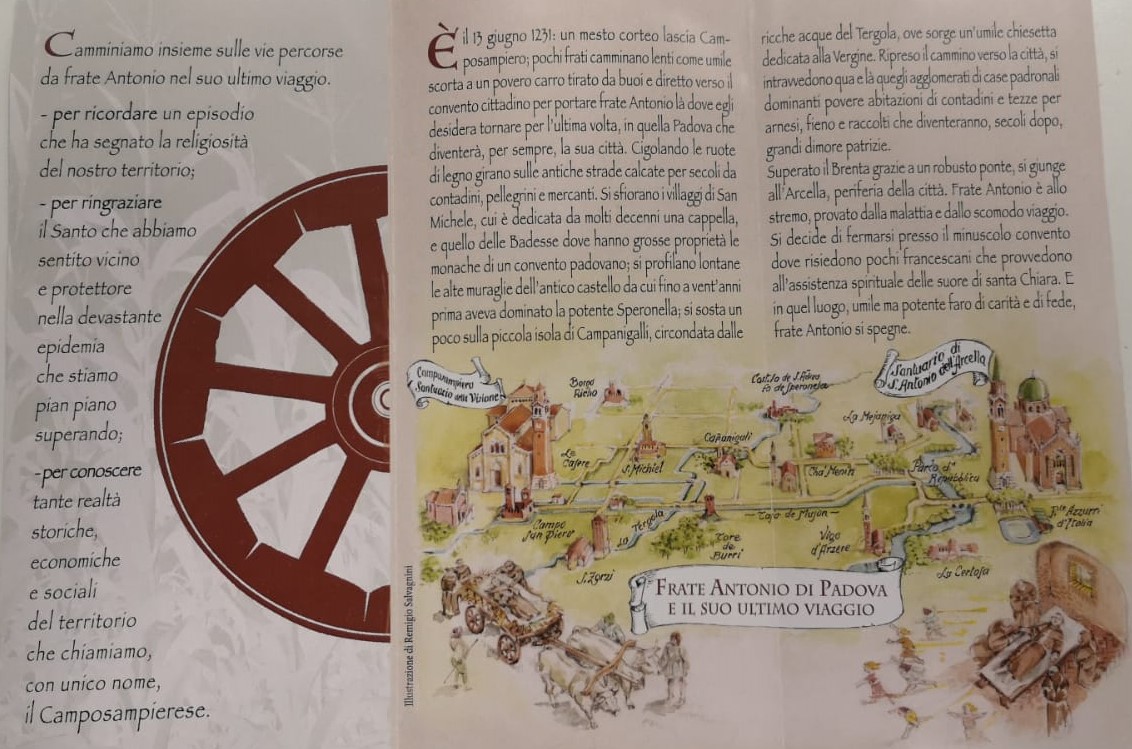 Camminiamo insieme sulle vie percorse
da frate Antonio nel suo ultimo viaggio.
- per ricordare un episodio
che ha segnato la religiosità
del nostro territorio;
- per ringraziare
il Santo che abbiamo
sentito vicino
e protettore
nella devastante
epidemia
che stiamo
pian piano
superando;
-per conoscere
tante realtà
storiche,
economiche
e sociali
del territorio
che chiamiamo,
con unico nome,
il Camposampierese.
È il 13 giugno 1231: un mesto corteo lascia Cam-
posampiero; pochi frati camminano lenti come umile
scorta a un povero carro tirato da buoi e diretto verso il
convento cittadino per portare frate Antonio là dove egli
desidera tornare per l'ultima volta, in quella Padova che
diventerà, per sempre, la sua città. Cigolando le ruote
di legno girano sulle antiche strade calcate per secoli da
contadini, pellegrini e mercanti. Si sfiorano i villaggi di San
Michele, cui è dedicata da molti decenni una cappella,
e quello delle Badesse dove hanno grosse proprietà le
monache di un convento padovano; si profilano lontane
le alte muraglie dell'antico castello da cui fino a vent'anni
prima aveva dominato la potente Speronella; si sosta un
poco sulla piccola isola di Campanigalli, circondata dalle
ricche acque del Tergola, ove sorge un'umile chiesetta
dedicata alla Vergine. Ripreso il cammino verso la città, si
intravvedono qua e là quegli agglomerati di case padronali
dominanti povere abitazioni di contadini e tezze per
arnesi, fieno e raccolti che diventeranno, secoli dopo,
grandi dimore patrizie.
Superato il Brenta grazie a un robusto ponte, si giunge
all'Arcella, periferia della città. Frate Antonio è allo
stremo, provato dalla malattia e dallo scomodo viaggio.
Si decide di fermarsi presso il minuscolo convento
dove risiedono pochi francescani che provvedono
all'assistenza spirituale delle suore di santa Chiara. E
in quel luogo, umile ma potente faro di carità e di fede,
frate Antonio si spegne.
Camposampiero
Santuario della Visione
Borgo
Richo
Santuario di
S. Antonio dell'Arcella
La Mejaniga
Capanigali
S. Michiel
Le
Casere
Cha Menin
Parco di
Repubblica
Campo
San Piero
Lo Tergola
— Tajo de Mujon —
P.te Azzurri
d'Italia
Tore
de
Burri
Vigo
d'Arzere
S. Zorzi
La Certosa
FRATE ANTONIO DI PADOVA
E IL SUO ULTIMO VIAGGIO
Illustrazione di Remigio Salvagnini